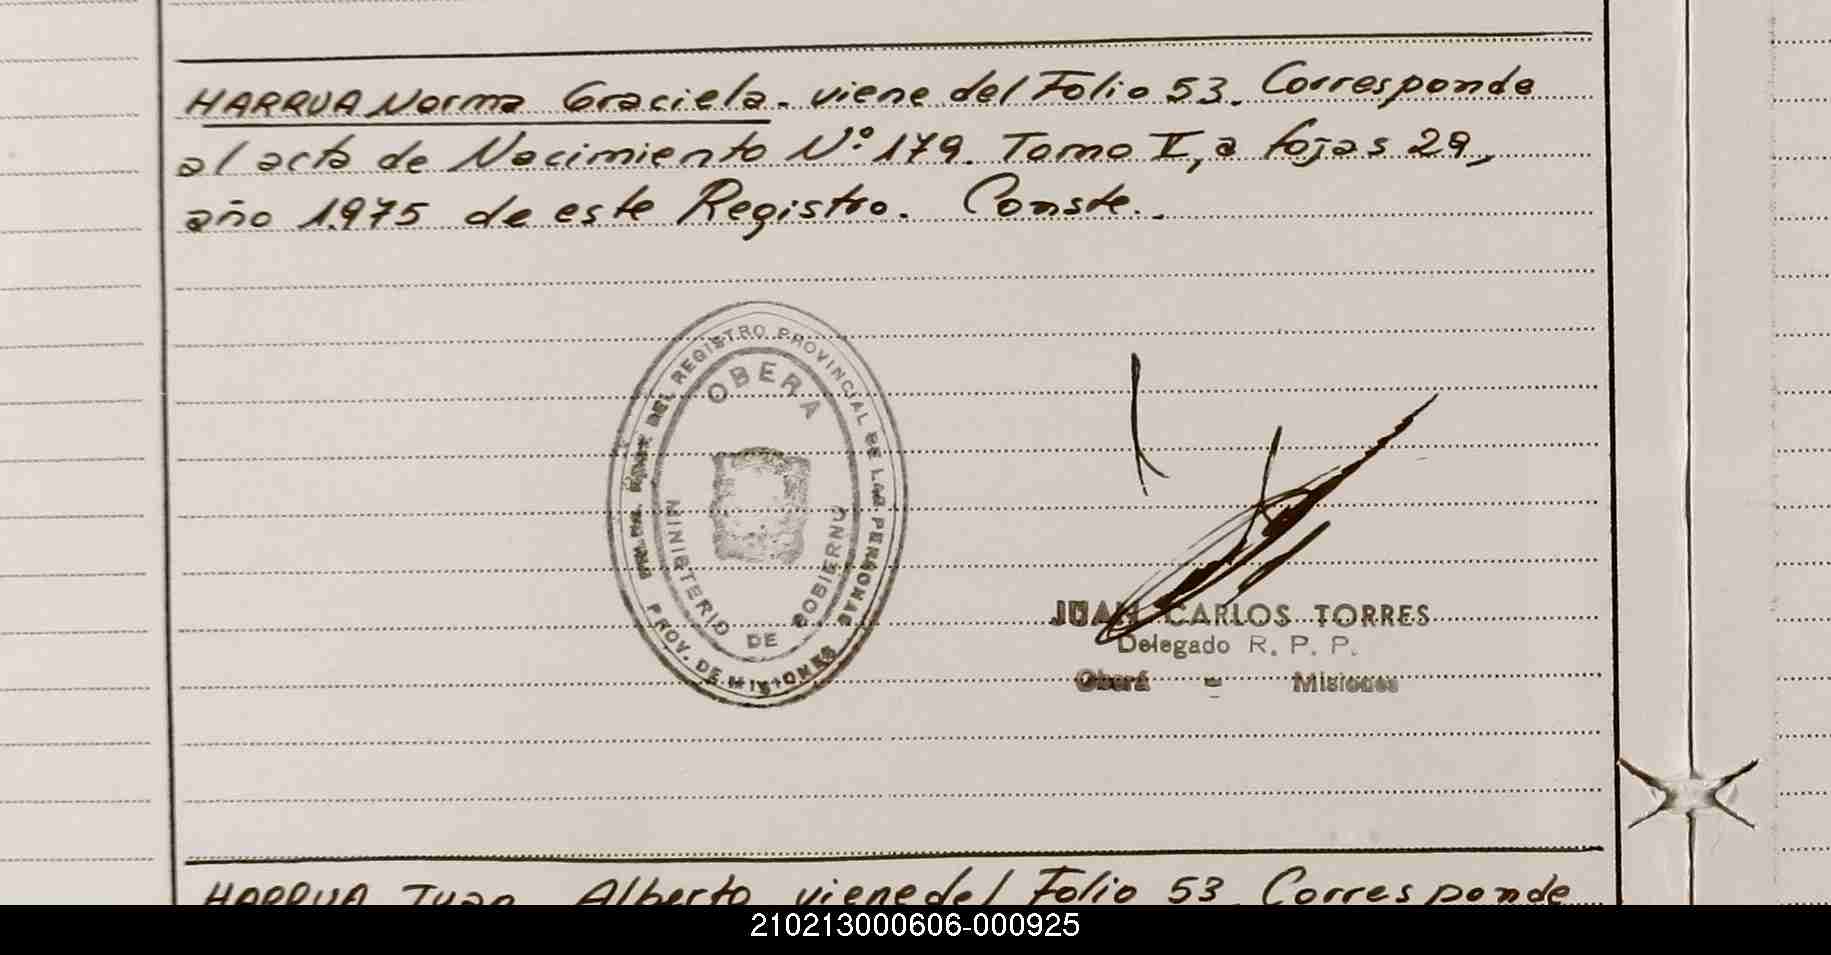 HARRUA Norma Graciela. viene del Folio 53. Corresponde
al acta de Nacimiento Nº 179. Tomo II, a fojas 29,
año 1.975 de este Registro. Conste.
DEL REGISTRO PROVINCIAL DE LAS PERSONAS
OBERA
MINISTERIO DE GOBIERNO
PROV. DE MISIONES
JUAN CARLOS TORRES
Delegado R. P. P.
Oberá - Misiones
HARRUA Juan Alberto viene del Folio 53. Corresponde
210213000606-000925